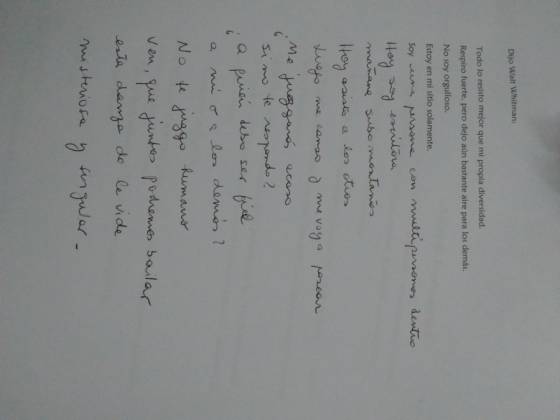 Dijo Walt Whitman:
Todo lo resisto mejor que mi propia diversidad.
Respiro fuerte, pero dejo aún bastante aire para los demás.
No soy orgulloso.
Estoy en mi sitio solamente.
Soy una persona con multipersonas dentro
Hoy soy escritora
mañana subo montañas
Hoy asisto a los otros
Luego me canso y me voy a pasear
¿Me juzgarás acaso
si no te respondo?
¿A quién debo ser fiel
a mí o a los demás?
No te juzgo humano
Ven, que juntos podremos bailar
esta danza de la vida
misteriosa y singular -